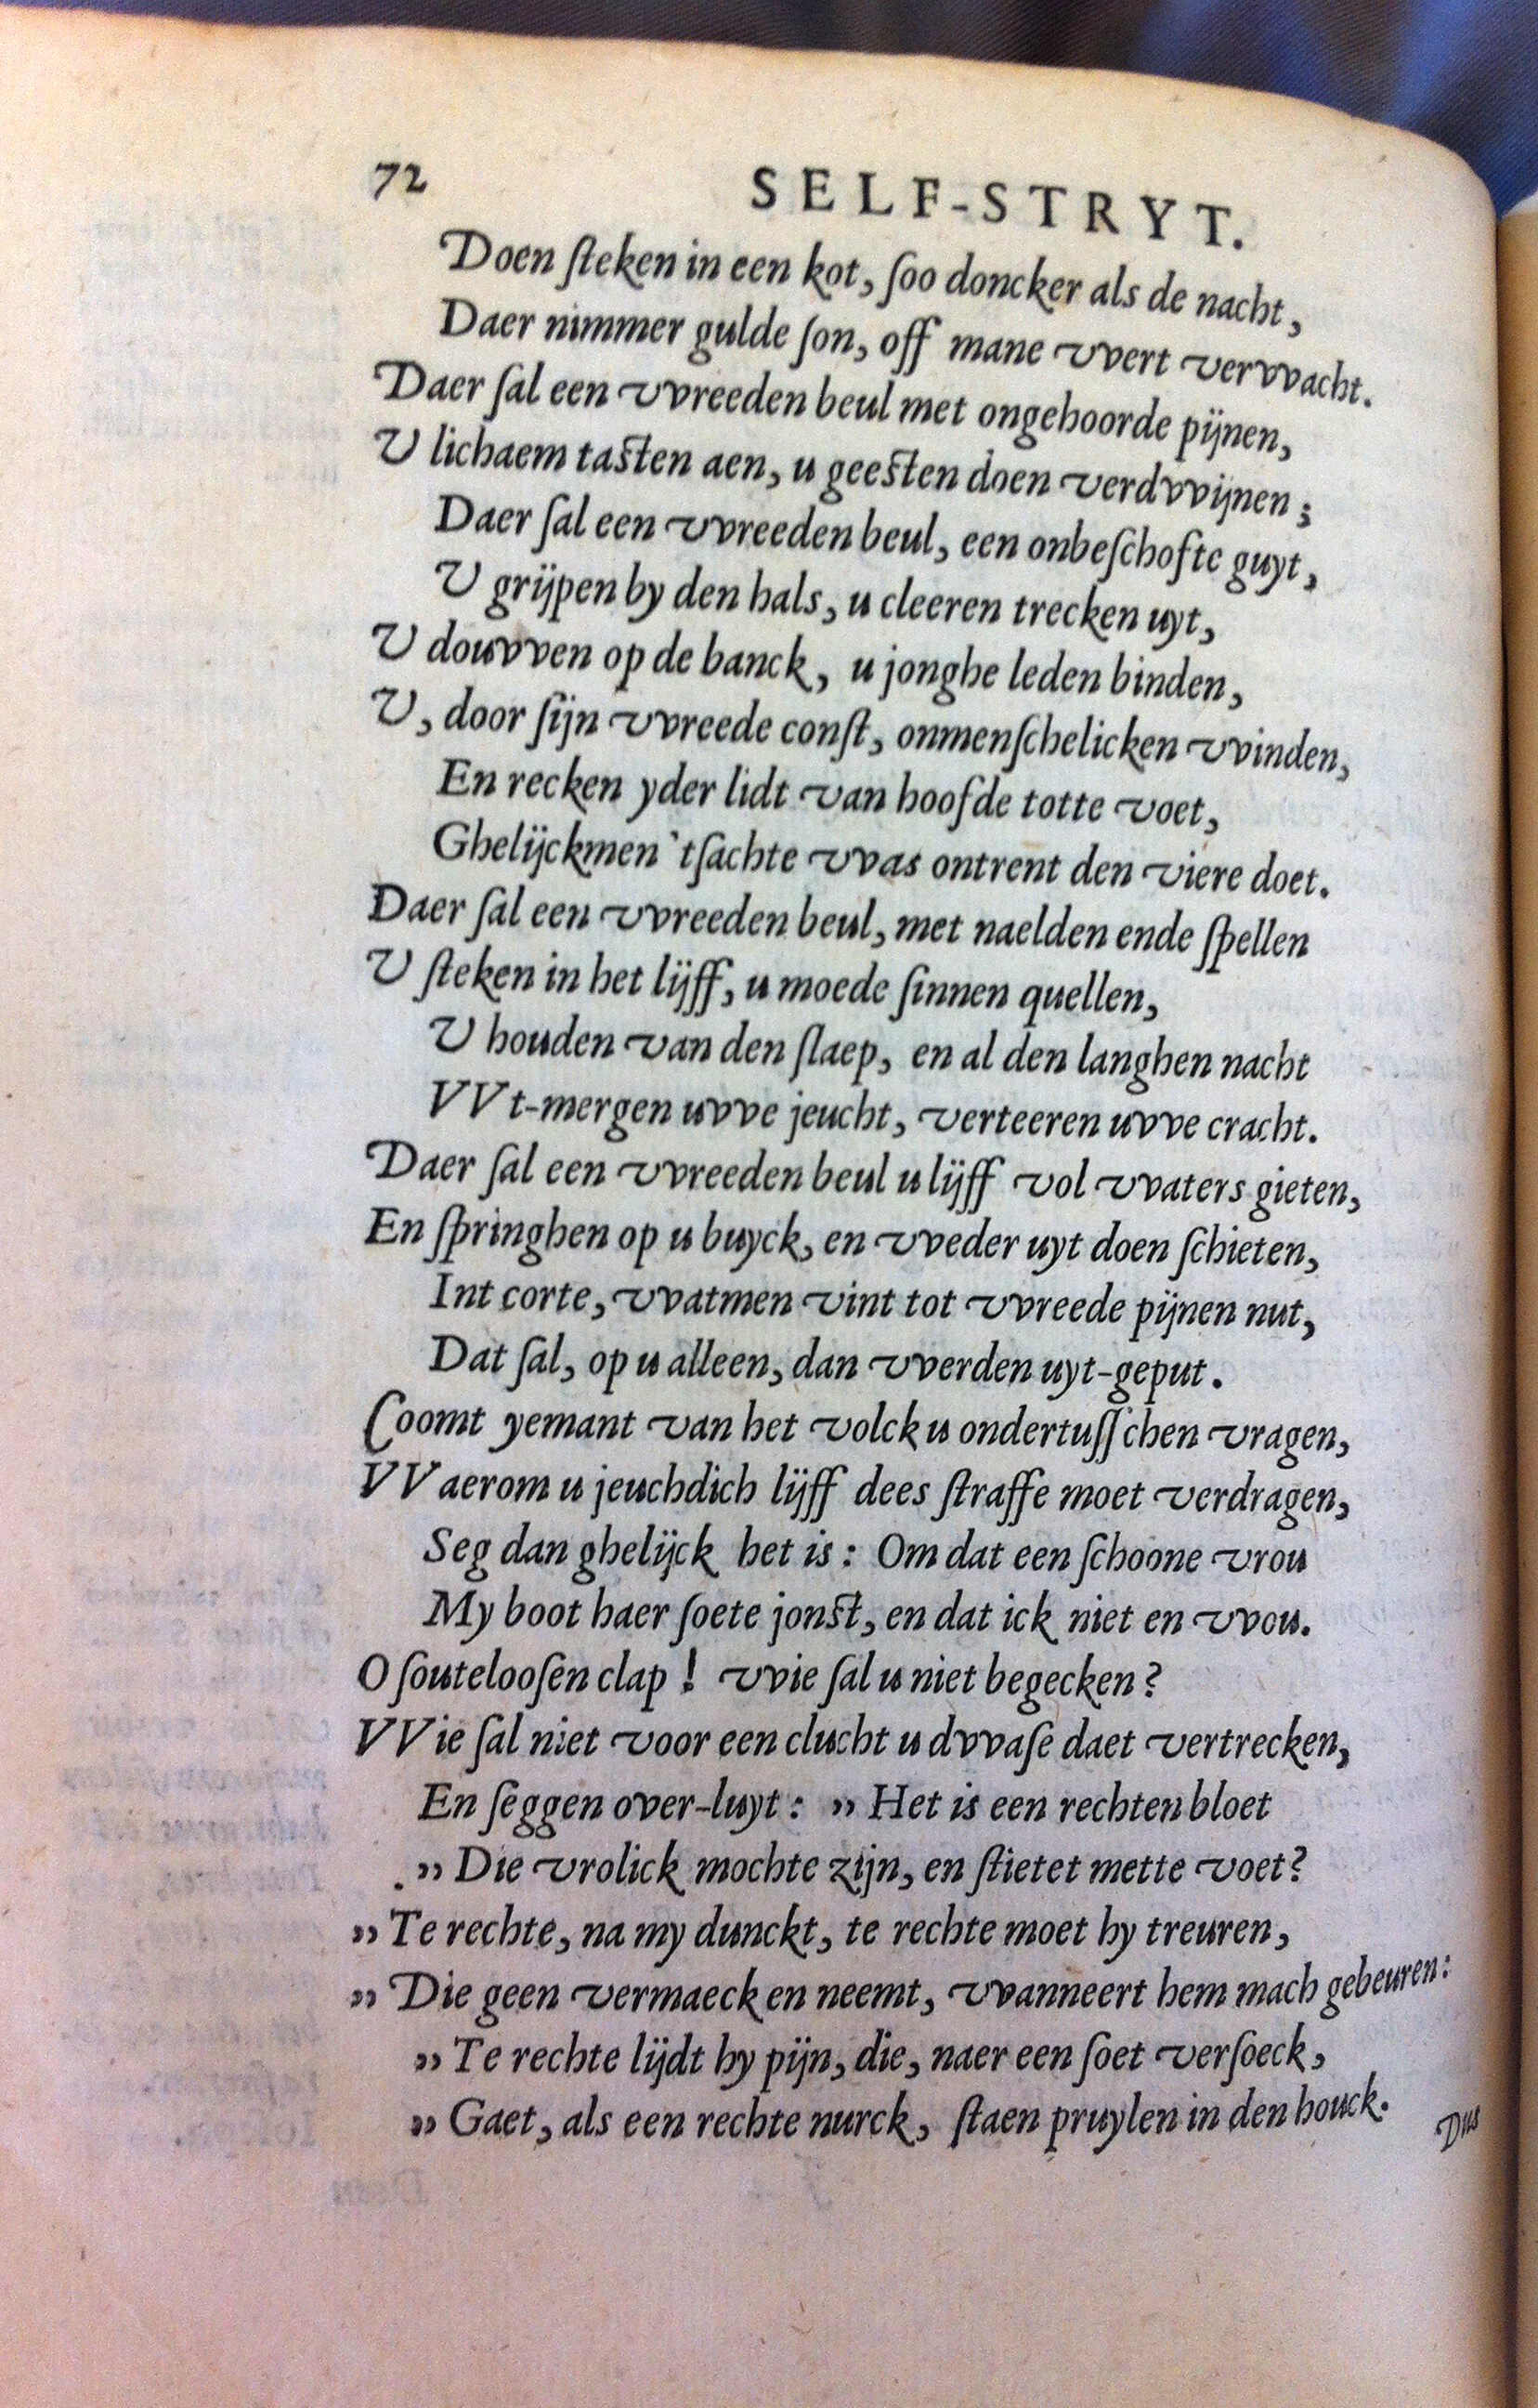 72 SELF-STRYT.
Doen ſteken in een kot, ſoo doncker als de nacht,
Daer nimmer gulde ſon, off mane vvert vervvacht.
Daer ſal een vvreeden beul met ongehoorde pijnen,
V lichaem taſten aen, u geeſten doen verdvvijnen;
Daer ſal een vvreeden beul, een onbeſchofte guyt,
V grijpen by den hals, u cleeren trecken uyt,
V douvven op de banck, u jonghe leden binden,
V, door ſijn vvreede conſt, onmenſchelicken vvinden,
En recken yder lidt van hoofde totte voet,
Ghelijckmen 'tſachte vvas ontrent den viere doet.
Daer ſal een vvreeden beul, met naelden ende ſpellen
V ſteken in het lijff, u moede ſinnen quellen,
V houden van den ſlaep, en al den langhen nacht
VVt-mergen uvve jeucht, verteeren uvve cracht.
Daer ſal een vvreeden beul u lijff vol vvaters gieten,
En ſpringhen op u buyck, en vveder uyt doen ſchieten,
Int corte, vvatmen vint tot vvreede pijnen nut,
Dat ſal, op u alleen, dan vverden uyt-geput.
Coomt yemant van het volck u ondertuſſchen vragen,
VVaerom u jeuchdich lijff dees ſtraffe moet verdragen,
Seg dan ghelijck het is: Om dat een ſchoone vrou
My boot haer ſoete jonſt, en dat ick niet en vvou.
O ſoutelooſen clap! vvie ſal u niet begecken?
VVie ſal niet voor een clucht u dvvaſe daet vertrecken,
En ſeggen over-luyt: „ Het is een rechten bloet
„ Die vrolick mochte zijn, en ſtietet mette voet?
„ Te rechte, na my dunckt, te rechte moet hy treuren,
„ Die geen vermaeck en neemt, vvanneert hem mach gebeuren:
„ Te rechte lijdt hy pijn, die, naer een ſoet verſoeck,
„ Gaet, als een rechte nurck, ſtaen pruylen in den houck.
Dus